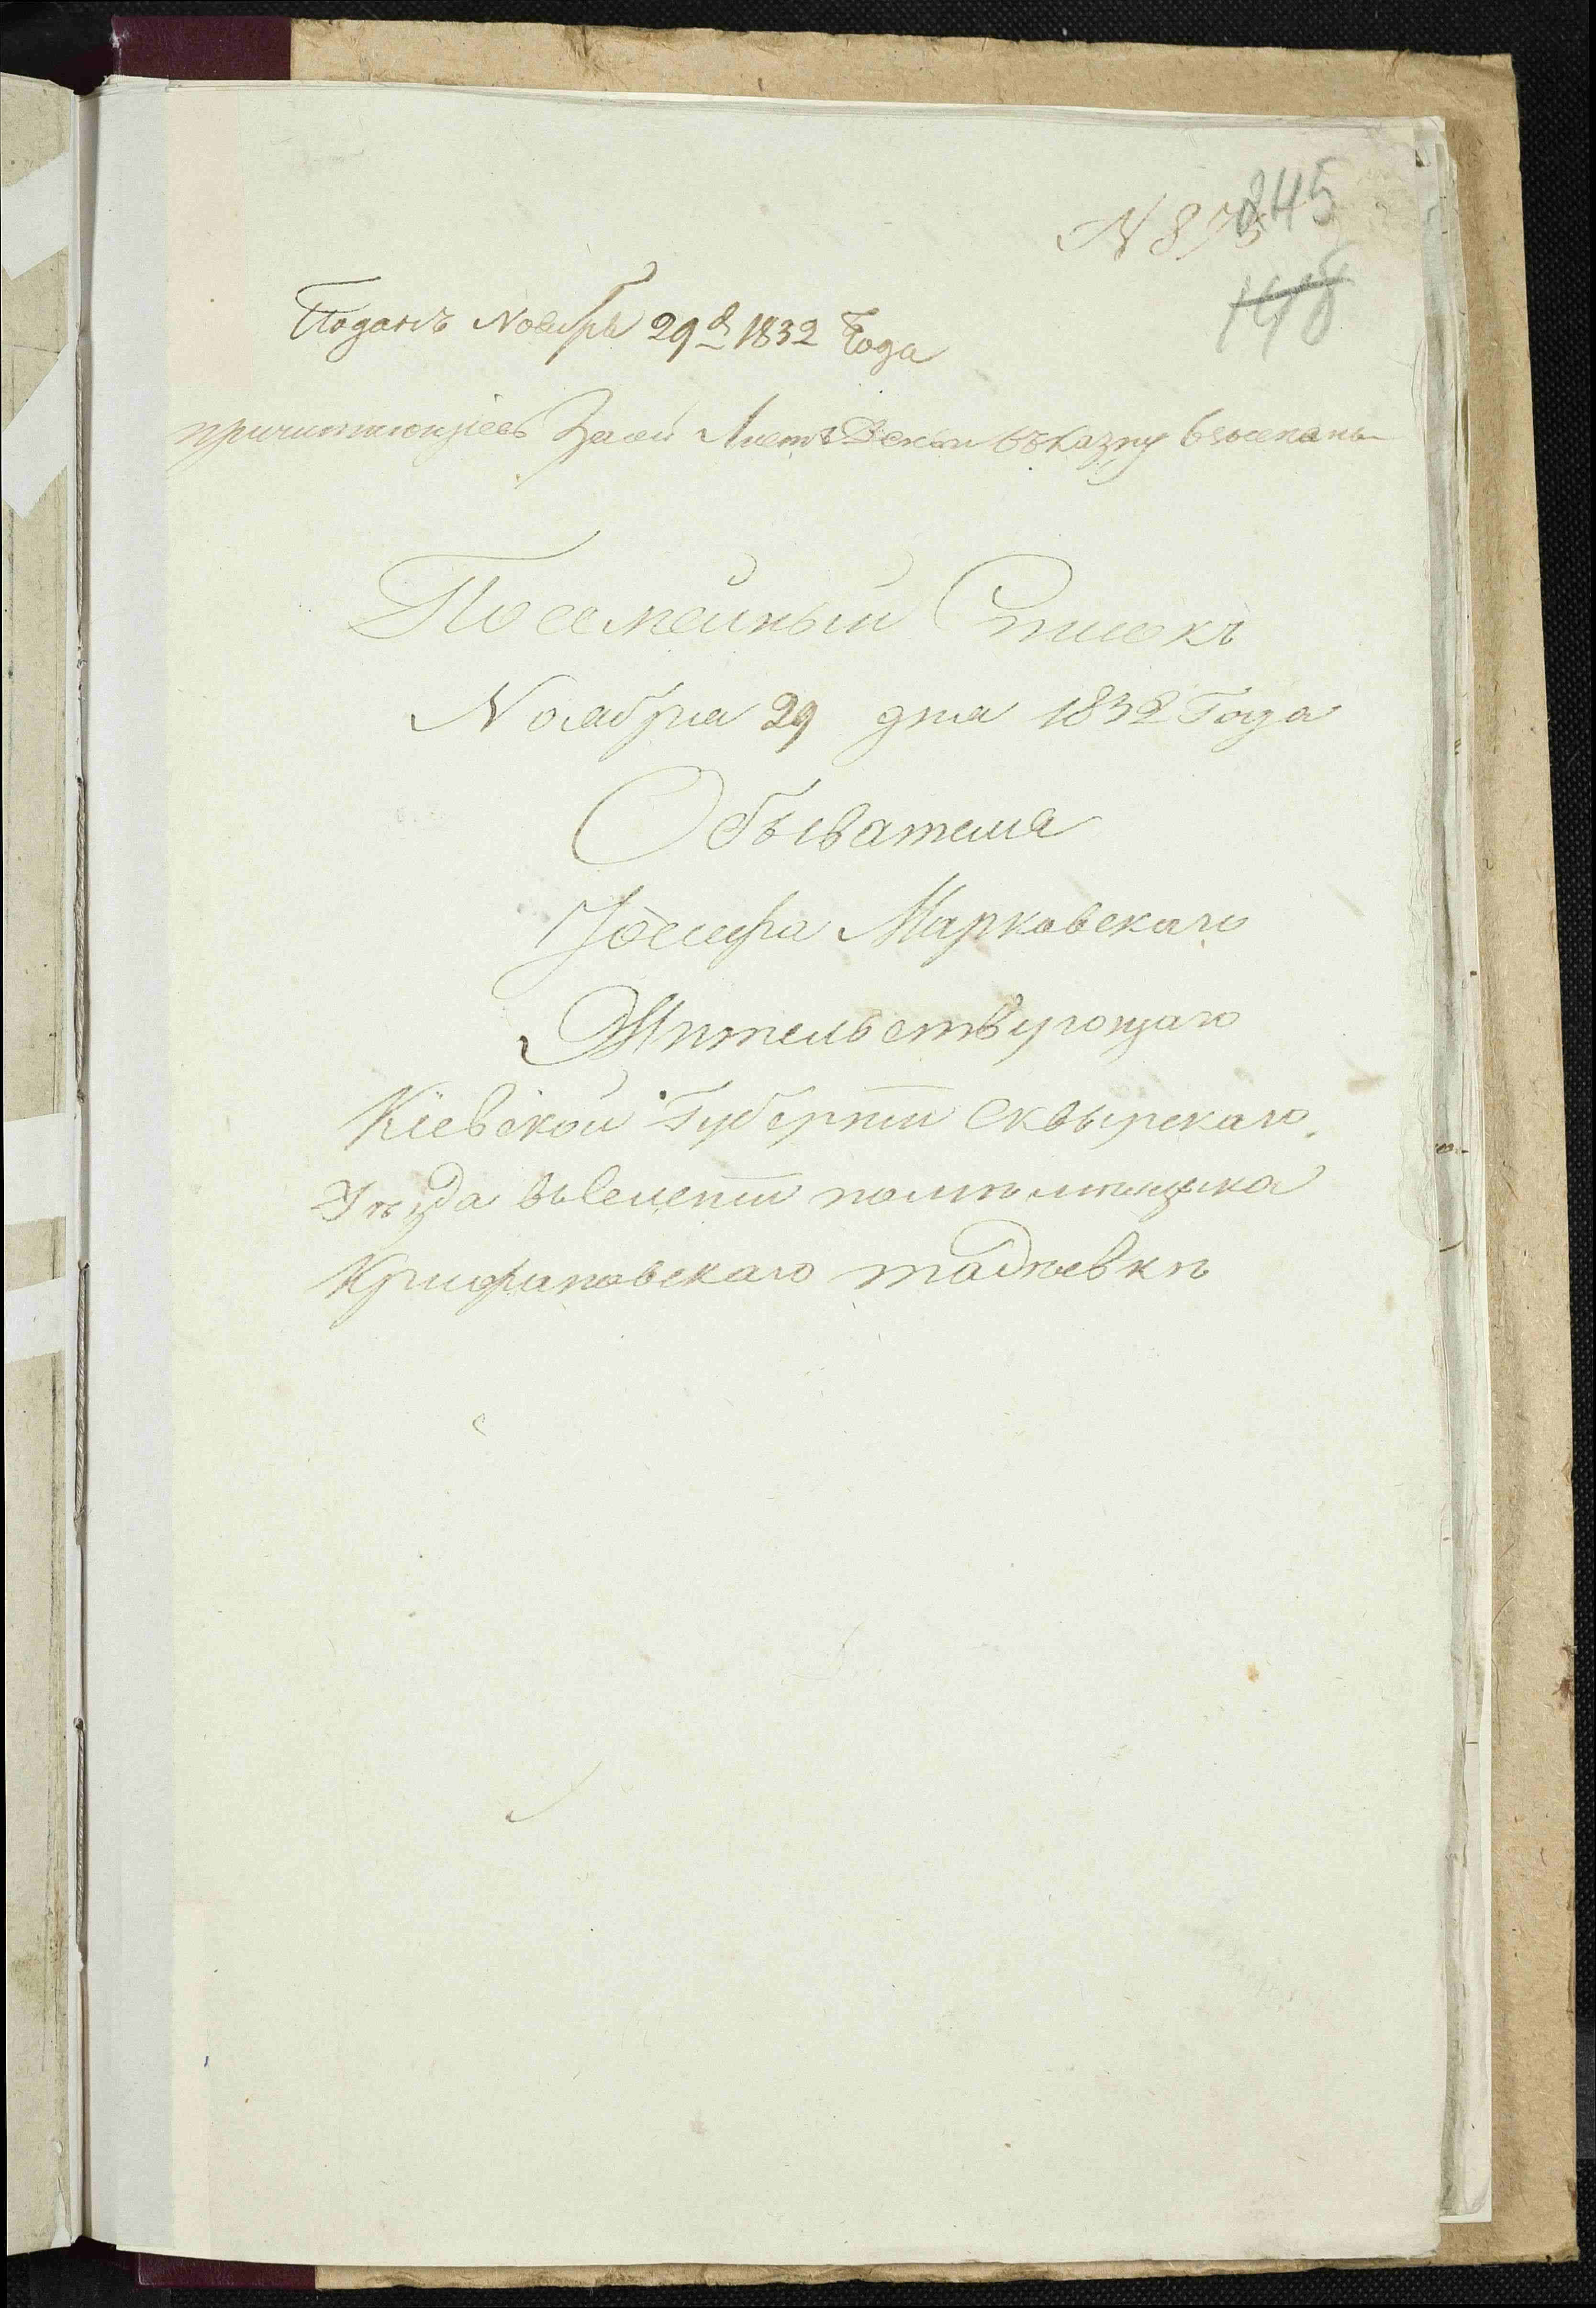 245
N 875
148
Поданъ Ноября 29 д 1832 Года
причитающіесь За сей Листъ Деньги въ казну взысканы
Посемейный Списокъ
Ноября 29 дня 1832 Года
Обывателя
Іосифа Марковскаго
Жительствующаго
Кіевской Губерніи Сквырскаго
Уѣзда въ Селеніи помѣщика
тадіевкѣ